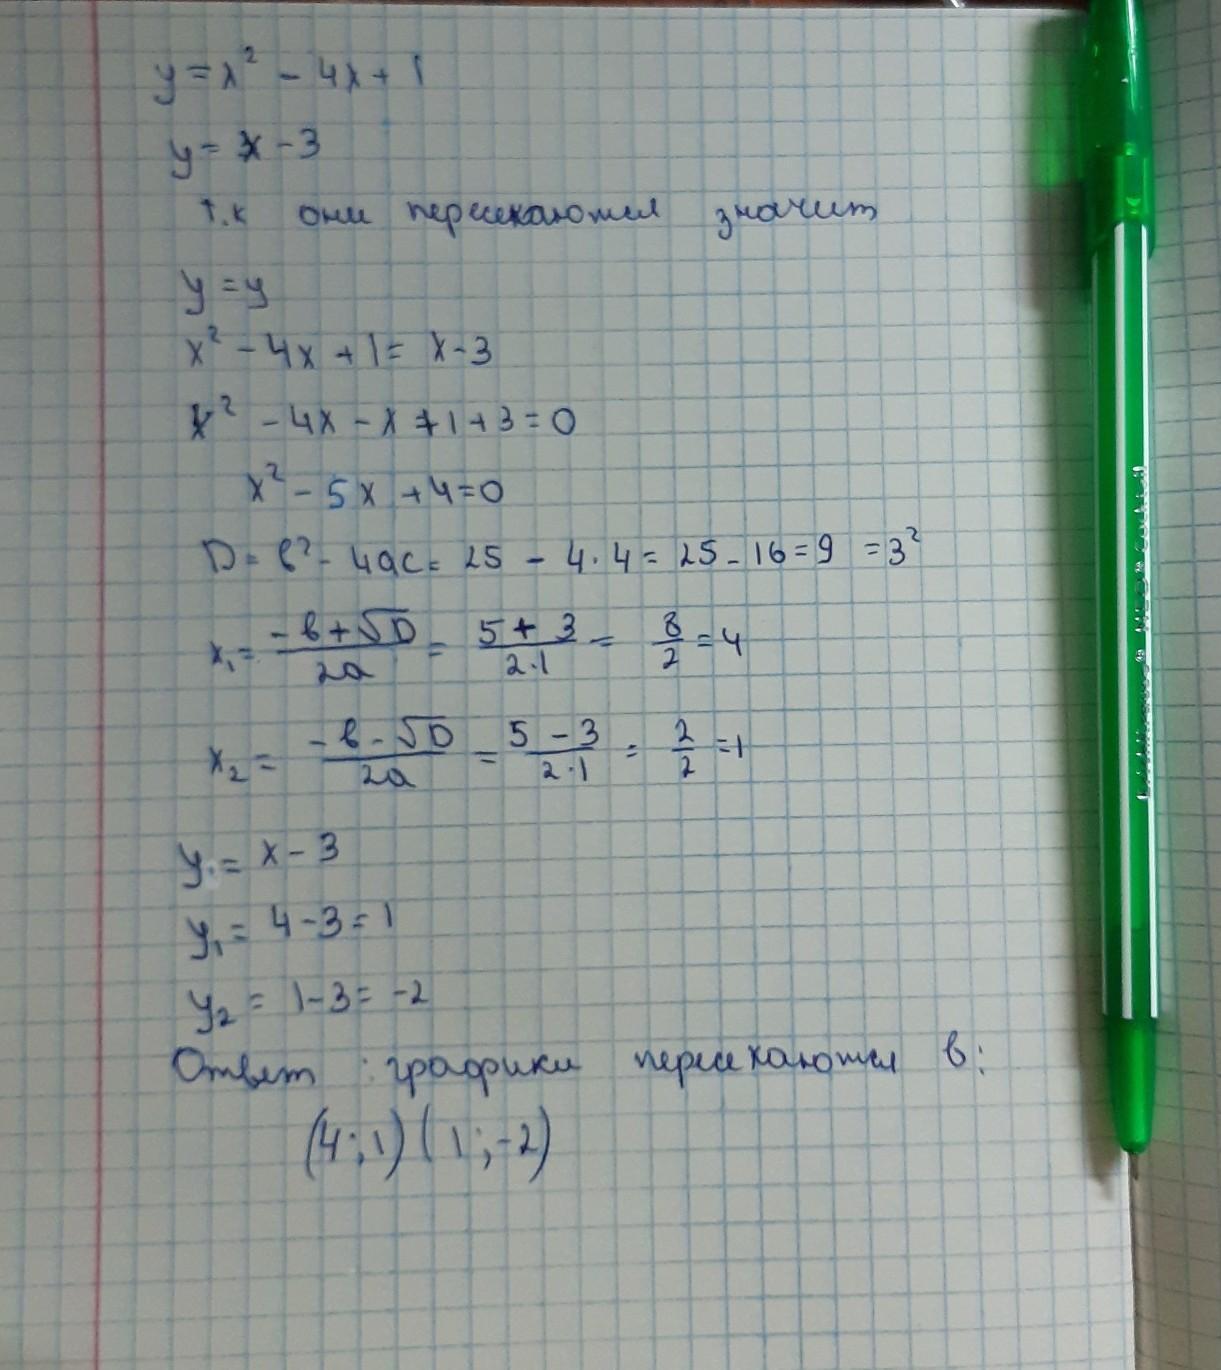 y = x² - 4x + 1
y = x - 3
т.к они пересекаются значит
y = y
x² - 4x + 1 = x - 3
x² - 4x - x + 1 + 3 = 0
x² - 5x + 4 = 0
D = b² - 4ac = 25 - 4·4 = 25 - 16 = 9 = 3²
x₁ = (-b + √D)/(2a) = (5 + 3)/(2·1) = 8/2 = 4
x₂ = (-b - √D)/(2a) = (5 - 3)/(2·1) = 2/2 = 1
y = x - 3
y₁ = 4 - 3 = 1
y₂ = 1 - 3 = -2
Ответ : графики пересекаются в:
(4;1) (1;-2)